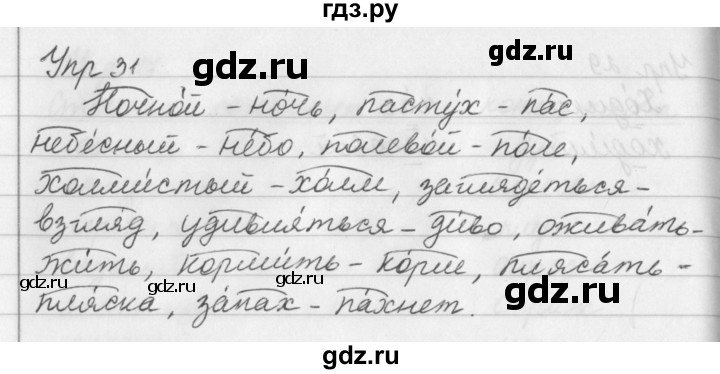 гдз.ру
gdz.ru
gdz.ru
Упр 31
Ночно́й - но́чь, пасту́х - па́с,
небе́сный - не́бо, полево́й - по́ле,
холми́стый - хо́лм, загляде́ться -
взгля́д, удивля́ться - ди́во, ожива́ть -
жи́ть, корми́ть - ко́рм, пляса́ть -
пля́ска, за́пах - па́хнет.
gdz.ru
gdz.ru
gdz.ru
gdz.ru
gdz.ru